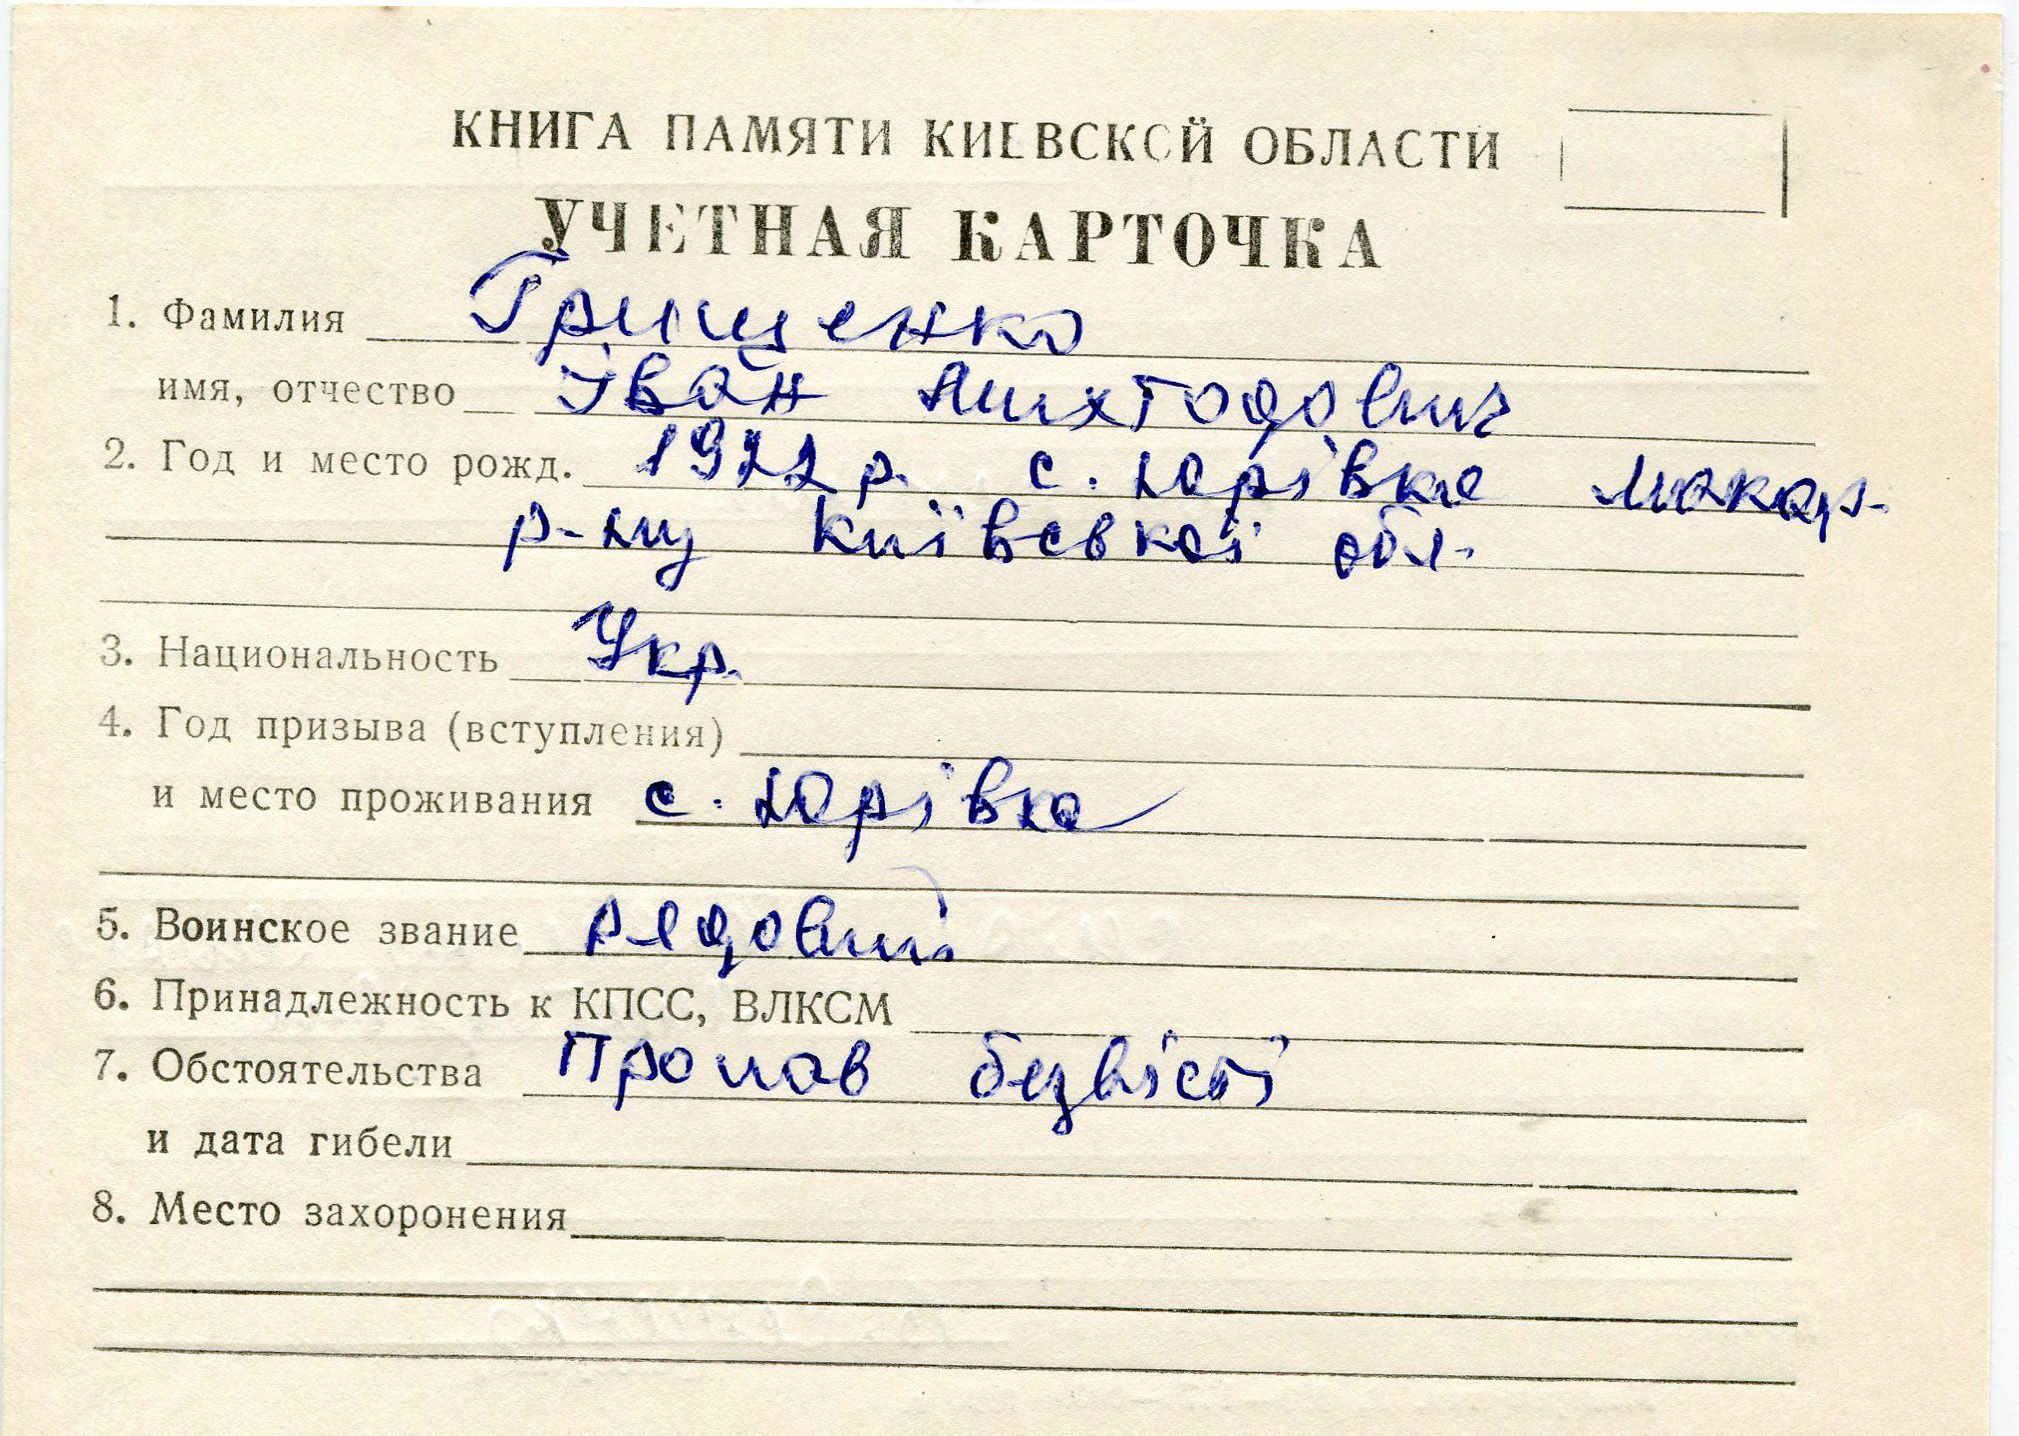 КНИГА ПАМЯТИ КИЕВСКОЙ ОБЛАСТИ
УЧЕТНАЯ КАРТОЧКА
1. Фамилия Грищенко
имя, отчество Іван
2. Год и место рожд. 1922 р. с. Юрівка Макар.
р-ну Київської обл.
3. Национальность Укр.
4. Год призыва (вступления)
и место проживания с. Юрівка
5. Воинское звание рядовий
6. Принадлежность к КПСС, ВЛКСМ
7. Обстоятельства Пропав безвісті
и дата гибели
8. Место захоронения